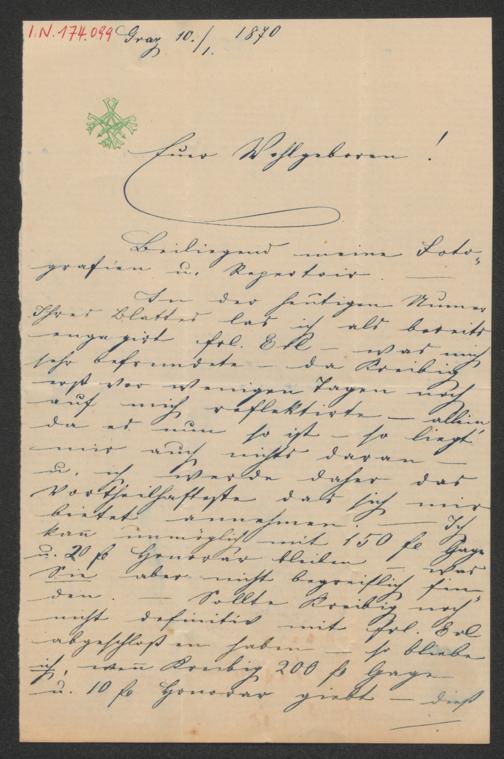 I.N. 174.099
Graz 10./1. 1870
Euer Wohlgeboren!
Beiliegend meine Foto-
grafien u. Repertoir. —
In der heutigen Numer
Ihres Blattes las ich als bereits
engagirt Frl. Erl — was mich
sehr befremdete — da Kreibig
erst vor wenigen Tagen noch
auf mich reflektirte — allein
da es nun so ist — so liegt
mir auch nichts daran —
u. ich werde daher das
Vortheilhafteste das sich mir
bietet annehmen. — Ich
kan unmöglich mit 150 fl Gage
u. 20 fl Honorar bleiben — was
Sie aber nicht begreiflich fin-
den. — Sollte Kreibig noch
nicht definitiv mit Frl. Erl
abgeschloßen haben — so bliebe
ich, wenn Kreibig 200 fl Gage
u. 10 fl Honorar giebt — dieß